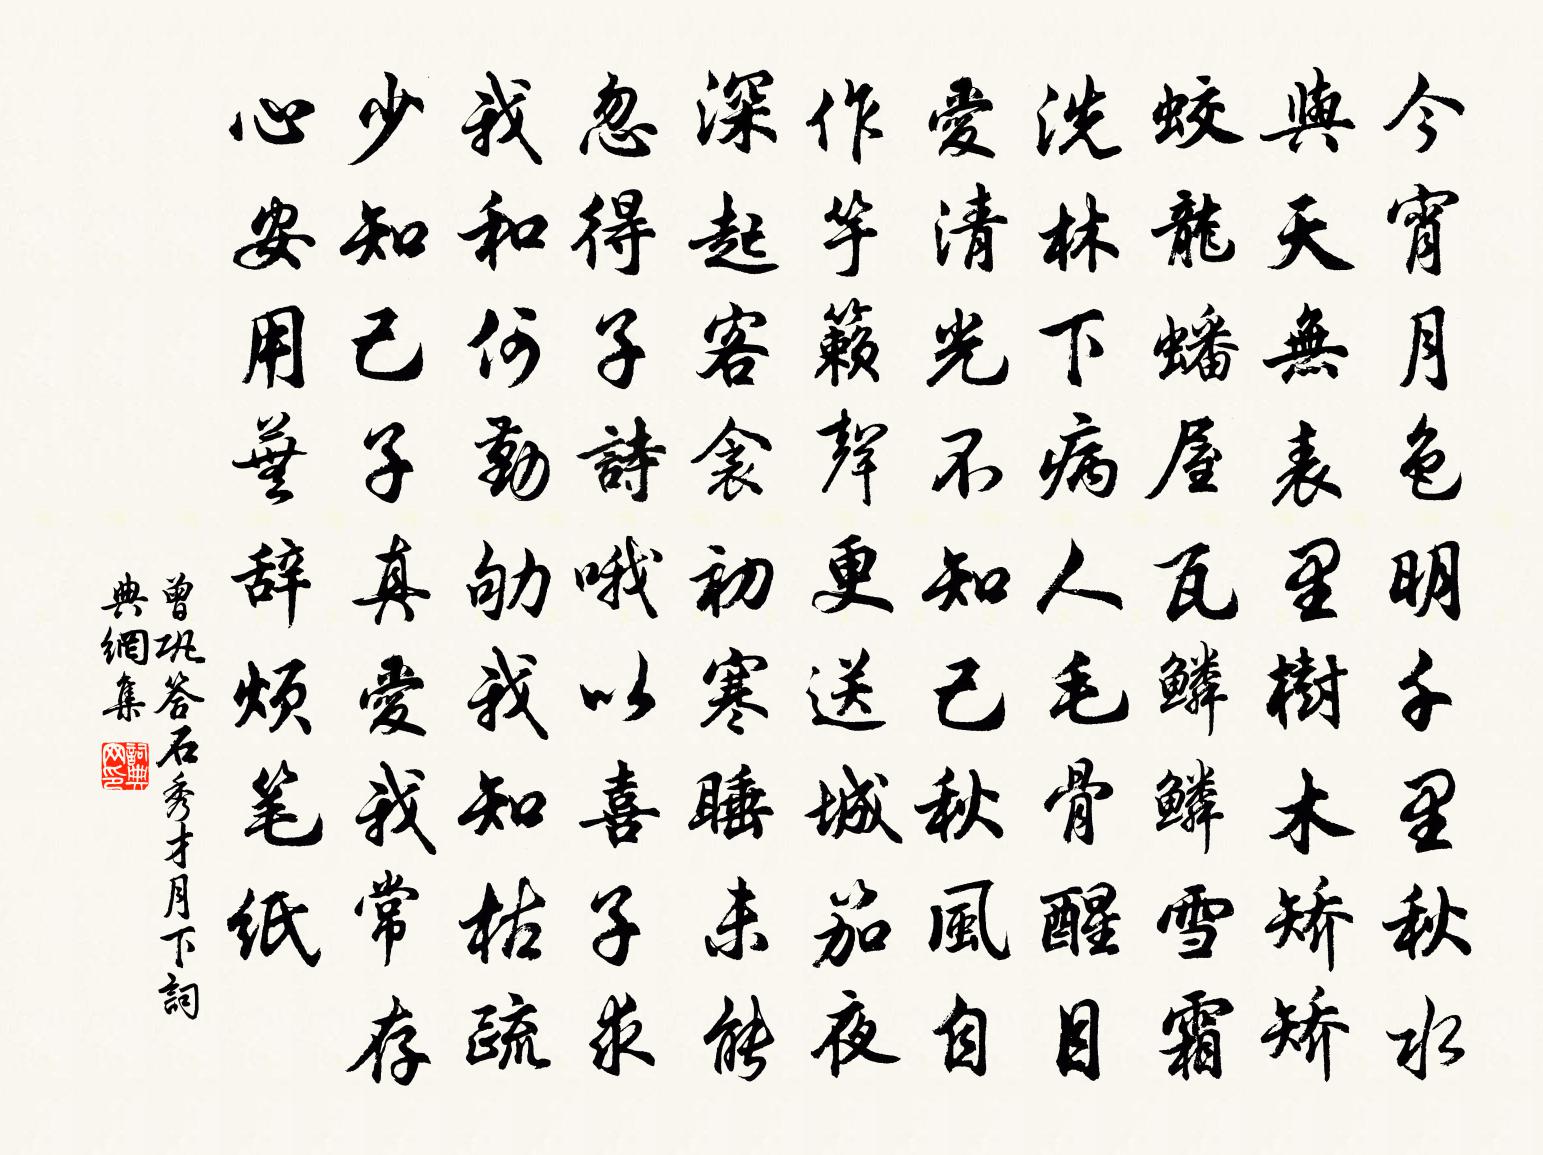 今宵月色明千里秋水
與天無表里樹木矫矫
蛟龍蟠屋瓦鱗鱗雪霜
洗林下病人毛骨醒目
愛清光不知己秋風自
作竽籟聲更送城笳夜
深起客衾初寒睡未能
忽得子詩哦以喜子求
我和何勤劬我知枯疏
少知己子真愛我常存
心安用蕪辞烦笔纸
曾巩答石秀才月下詞
典網集
詞典網印